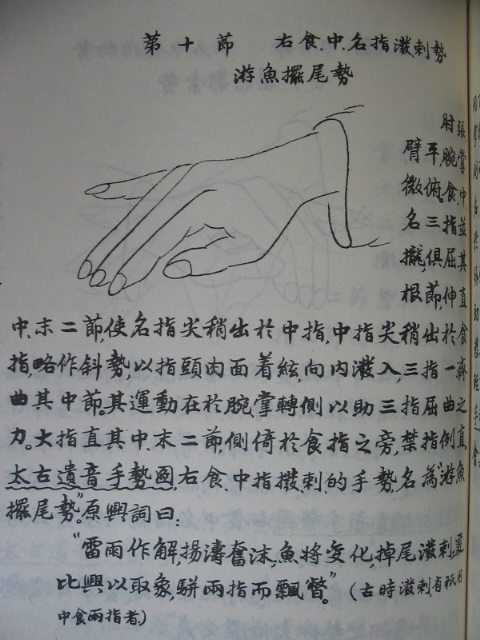 第十節　右食.中.名指潑剌勢
游魚擺尾勢
肘張
臂平,腕掌
微俯,食.中
名三指並
攏,俱屈其
根節,伸直
中.末二節,使名指尖稍出於中指,中指尖稍出於食
指,略作斜勢,以指頭肉面着絃,向内潑入,三指一齊
曲其中節。其運動在於腕掌轉側以助三指屈曲之
力。大指直其中.末二節,側倚於食指之旁,禁指例直,
太古遺音手勢圖,右食.中指撥剌的手勢,名為“游魚
擺尾勢”。原興詞曰:
“雷雨作解,揚濤奮沫,魚將变化,掉尾潑剌,爰
比興以取象,駢兩指而飄瞥。”(古時潑剌有衹用
中食兩指者.)